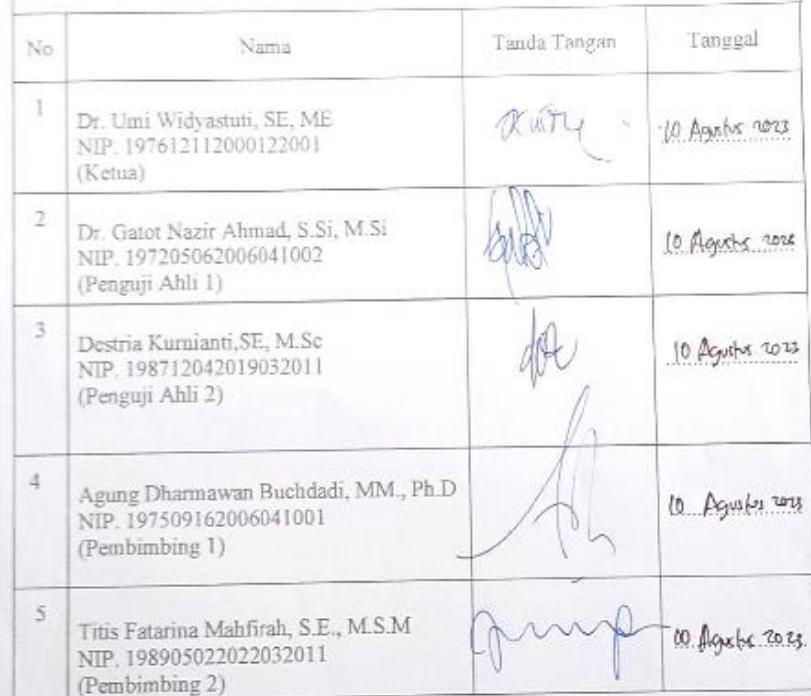 No Nama Tanda Tangan Tanggal
1
Dr. Umi Widyastuti, SE, ME
NIP. 197612112000122001
(Ketua)
10 Agustus 2023
2
Dr. Gatot Nazir Ahmad, S.Si, M.Si
NIP. 197205062006041002
(Penguji Ahli 1)
10 Agustus 2023
3
Destria Kurnianti,SE, M.Sc
NIP. 198712042019032011
(Penguji Ahli 2)
10 Agustus 2023
4
Agung Dharmawan Buchdadi, MM., Ph.D
NIP. 197509162006041001
(Pembimbing 1)
10 Agustus 2023
5
Titis Fatarina Mahfirah, S.E., M.S.M
NIP. 198905022022032011
(Pembimbing 2)
10 Agustus 2023.